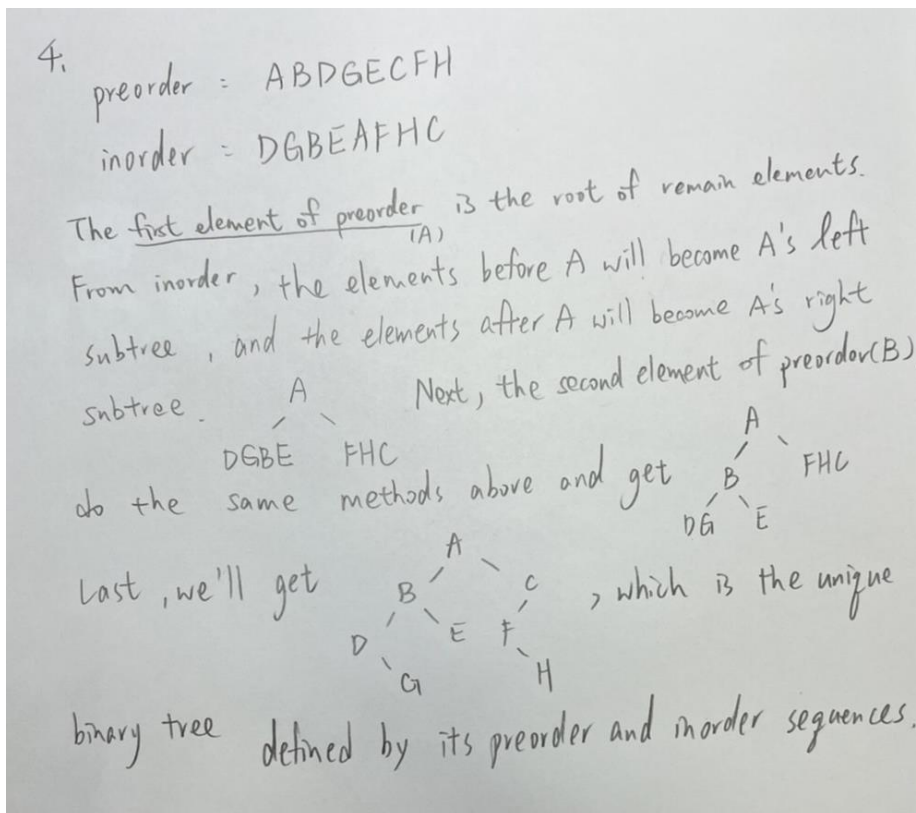 4.
preorder : ABDGECFH
inorder : DGBEAFHC
The first element of preorder is the root of remain elements.
(A)
From inorder, the elements before A will become A's left
subtree, and the elements after A will become A's right
subtree. Next, the second element of preordor(B)
A
DGBE FHC
do the same methods above and get
A
B FHC
DG E
Last, we'll get , which is the unique
A
B C
D E F
G H
binary tree defined by its preorder and inorder sequences.